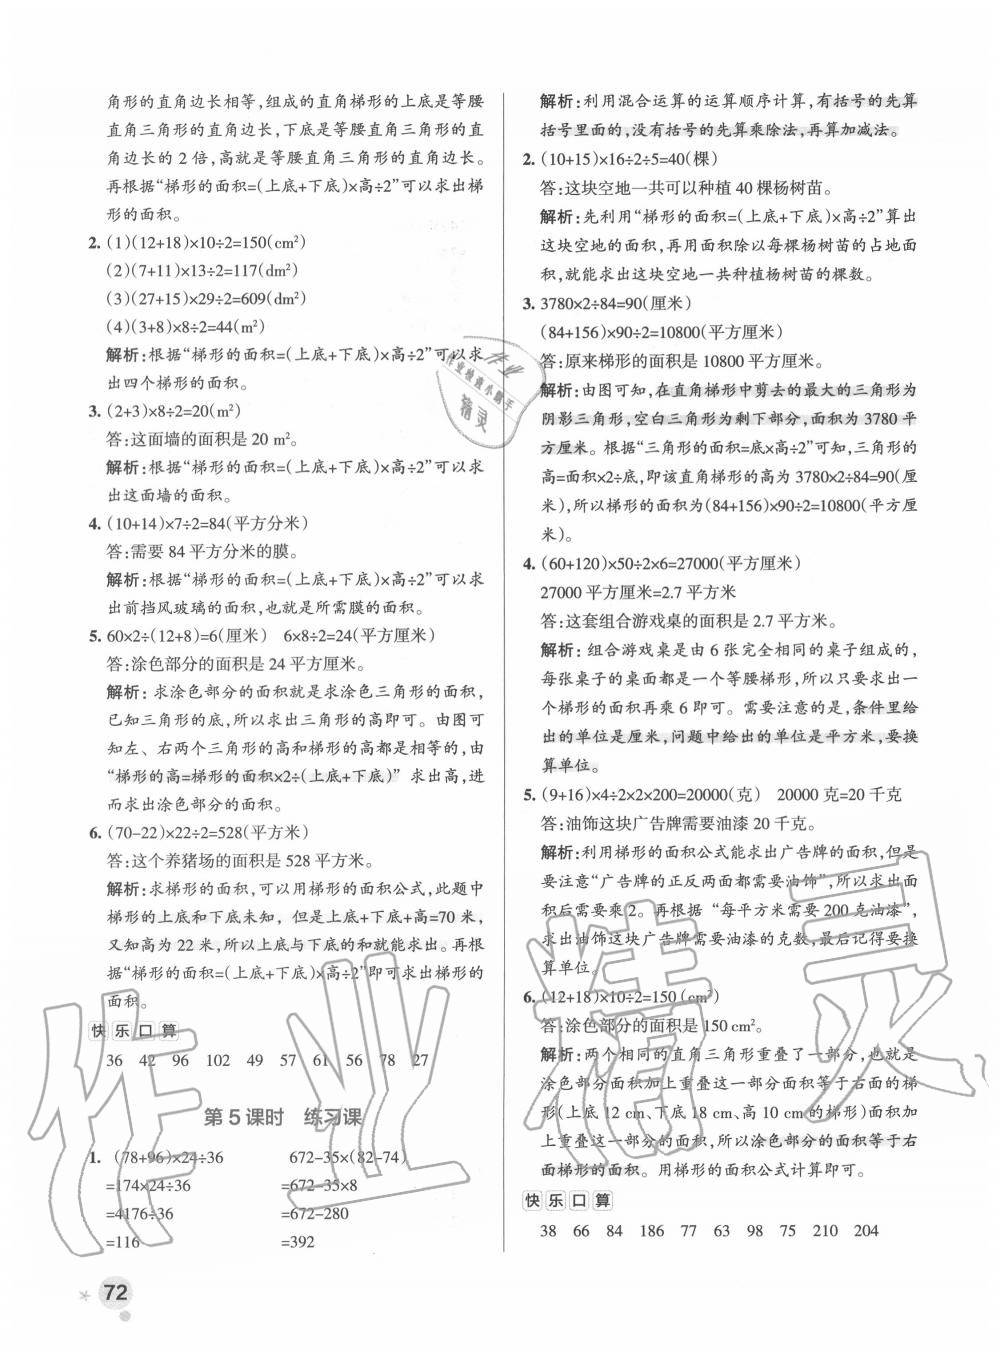 角形的直角边长相等,组成的直角梯形的上底是等腰
直角三角形的直角边长,下底是等腰直角三角形的直
角边长的 2 倍,高就是等腰直角三角形的直角边长。
再根据“梯形的面积=(上底+下底)×高÷2”可以求出梯
形的面积。
2. (1)(12+18)×10÷2=150(cm²)
(2)(7+11)×13÷2=117(dm²)
(3)(27+15)×29÷2=609(dm²)
(4)(3+8)×8÷2=44(m²)
解析:根据“梯形的面积=(上底+下底)×高÷2”可以求
出四个梯形的面积。
3. (2+3)×8÷2=20(m²)
答:这面墙的面积是 20 m²。
解析:根据“梯形的面积=(上底+下底)×高÷2”可以求
出这面墙的面积。
4. (10+14)×7÷2=84(平方分米)
答:需要 84 平方分米的膜。
解析:根据“梯形的面积=(上底+下底)×高÷2”可以求
出前挡风玻璃的面积,也就是所需膜的面积。
5. 60×2÷(12+8)=6(厘米) 6×8÷2=24(平方厘米)
答:涂色部分的面积是 24 平方厘米。
解析:求涂色部分的面积就是求涂色三角形的面积,
已知三角形的底,所以求出三角形的高即可。由图可
知左、右两个三角形的高和梯形的高都是相等的,由
“梯形的高=梯形的面积×2÷(上底+下底)”求出高,进
而求出涂色部分的面积。
6. (70-22)×22÷2=528(平方米)
答:这个养猪场的面积是 528 平方米。
解析:求梯形的面积,可以用梯形的面积公式,此题中
梯形的上底和下底未知,但是上底+下底+高=70 米,
又知高为 22 米,所以上底与下底的和就能求出。再根
据“梯形的面积=(上底+下底)×高÷2”即可求出梯形的
面积。
快乐口算
36 42 96 102 49 57 61 56 78 27
第 5 课时 练习课
1. (78+96)×24÷36 672-35×(82-74)
=174×24÷36 =672-35×8
=4176÷36 =672-280
=116 =392
72
解析:利用混合运算的运算顺序计算,有括号的先算
括号里面的,没有括号的先算乘除法,再算加减法。
2. (10+15)×16÷2÷5=40(棵)
答:这块空地一共可以种植 40 棵杨树苗。
解析:先利用“梯形的面积=(上底+下底)×高÷2”算出
这块空地的面积,再用面积除以每棵杨树苗的占地面
积,就能求出这块空地一共种植杨树苗的棵数。
3. 3780×2÷84=90(厘米)
(84+156)×90÷2=10800(平方厘米)
答:原来梯形的面积是 10800 平方厘米。
解析:由图可知,在直角梯形中剪去的最大的三角形为
阴影三角形,空白三角形为剩下部分,面积为 3780 平
方厘米。根据“三角形的面积=底×高÷2”可知,三角形的
高=面积×2÷底,即该直角梯形的高为 3780×2÷84=90(厘
米),所以梯形的面积为(84+156)×90÷2=10800(平方厘
米)。
4. (60+120)×50÷2×6=27000(平方厘米)
27000 平方厘米=2.7 平方米
答:这套组合游戏桌的面积是 2.7 平方米。
解析:组合游戏桌是由 6 张完全相同的桌子组成的,
每张桌子的桌面都是一个等腰梯形,所以只要求出一
个梯形的面积再乘 6 即可。需要注意的是,条件里给
出的单位是厘米,问题中给出的单位是平方米,要换
算单位。
5. (9+16)×4÷2×2×200=20000(克) 20000 克=20 千克
答:油饰这块广告牌需要油漆 20 千克。
解析:利用梯形的面积公式能求出广告牌的面积,但是
要注意“广告牌的正反两面都需要油饰”,所以求出面
积后需要乘2。再根据“每平方米需要 200 克油漆”,
求出油饰这块广告牌需要油漆的克数,最后记得要换
算单位。
6. (12+18)×10÷2=150(cm²)
答:涂色部分的面积是 150 cm²。
解析:两个相同的直角三角形重叠了一部分,也就是
涂色部分面积加上重叠这一部分的面积等于右面的梯
形(上底 12 cm、下底 18 cm、高 10 cm 的梯形)面积加
上重叠这一部分的面积,所以涂色部分的面积等于右
面梯形的面积。用梯形的面积公式计算即可。
快乐口算
38 66 84 186 77 63 98 75 210 204
作业精灵
作业
作业检查小助手
精灵